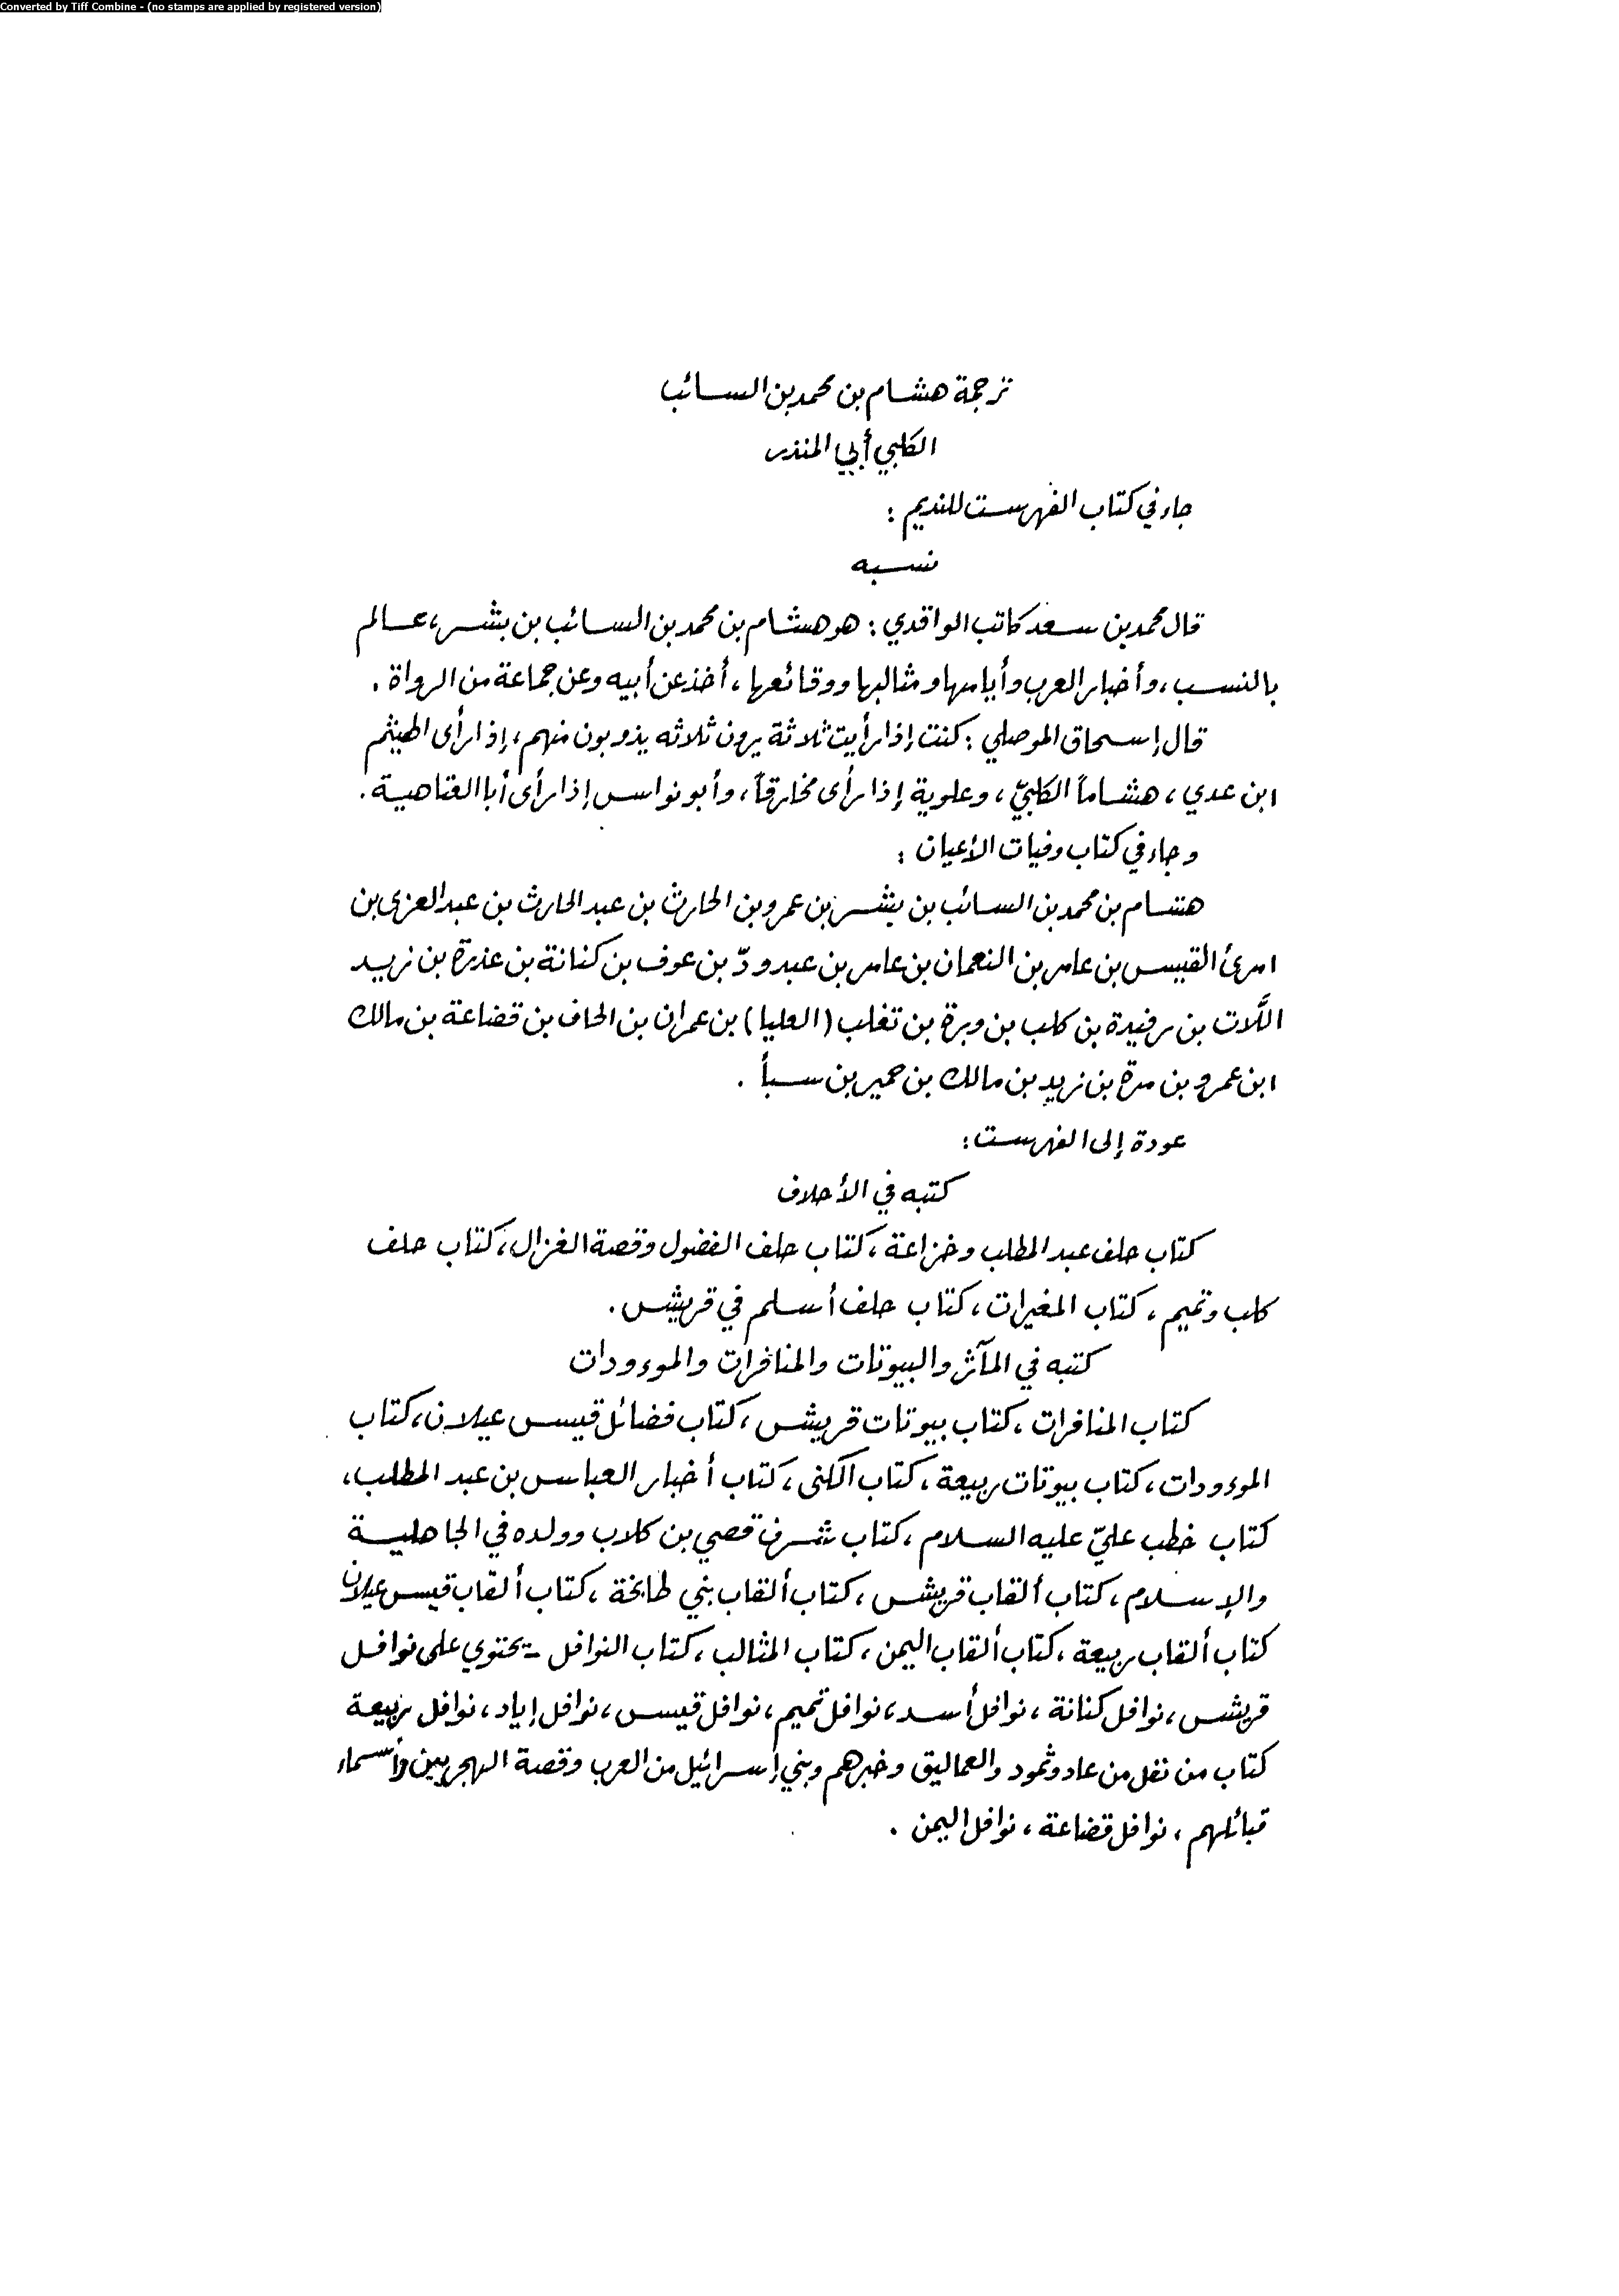 Converted by Tiff Combine - (no stamps are applied by registered version)
ترجمة هشام بن محمد بن السائب
الكلبي أبي المنذر
جاء في كتاب الفهرست للنديم :
نسبه
قال محمد بن سعد كاتب الواقدي : هو هشام بن محمد بن السائب بن بشر، عالم
بالنسب، وأخبار العرب وأيامها ومثالبها ووقائعها ، أخذ عن أبيه وعن جماعة من الرواة .
قال إسحاق الموصلي : كنت إذا رأيت ثلاثة يرون ثلاثه يذوبون منهم، إذا رأى الهيثم
ابن عدي ، هشاماً الكلبيّ ، وعلوية إذا رأى مخارقاً، وأبو نواس إذا رأى أبا العتاهية .
وجاء في كتاب وفيات الأعيان :
هشام بن محمد بن السائب بن بشر بن عمرو بن الحارث بن عبد الحارث بن عبد العزى بن
امرئ القيس بن عامر بن النعمان بن عامر بن عبدودّ بن عوف بن كنانة بن عذرة بن زيد
اللّات بن رفيدة بن كلب بن وبرة بن تغلب (العليا) بن عمران بن الحاف بن قضاعة بن مالك
ابن عمرو بن مرة بن زيد بن مالك بن حمير بن سبأ .
عودة إلى الفهرست :
كتبه في الأحلاف
كتاب حلف عبد المطلب وخزاعة ، كتاب حلف الفضول وقصة الغزال، كتاب حلف
كلب وتميم ، كتاب المغيرات ، كتاب حلف أسلم في قريش .
كتبه في المآثر والبيوتات والمنافرات والموءودات
كتاب المنافرات ، كتاب بيوتات قريش ، كتاب فضائل قيس عيلان، كتاب
الموءودات ، كتاب بيوتات ربيعة ، كتاب الكنى ، كتاب أخبار العباس بن عبد المطلب،
كتاب خطب عليّ عليه السلام ، كتاب شرف قصي بن كلاب وولده في الجاهلية
والإسلام ، كتاب ألقاب قريش ، كتاب ألقاب بني طابخة ، كتاب ألقاب قيس عيلان
كتاب ألقاب ربيعة ، كتاب ألقاب اليمن ، كتاب المثالب ، كتاب النوافل - يحتوي على نوافل
قريش ، نوافل كنانة ، نوافل أسد ، نوافل تميم ، نوافل قيس ، نوافل إياد ، نوافل ربيعة
كتاب من نفل من عاد وثمود والعماليق وخبرهم وبني إسرائيل من العرب وقصة الهجريين وأسماء
قبائلهم ، نوافل قضاعة ، نوافل اليمن .